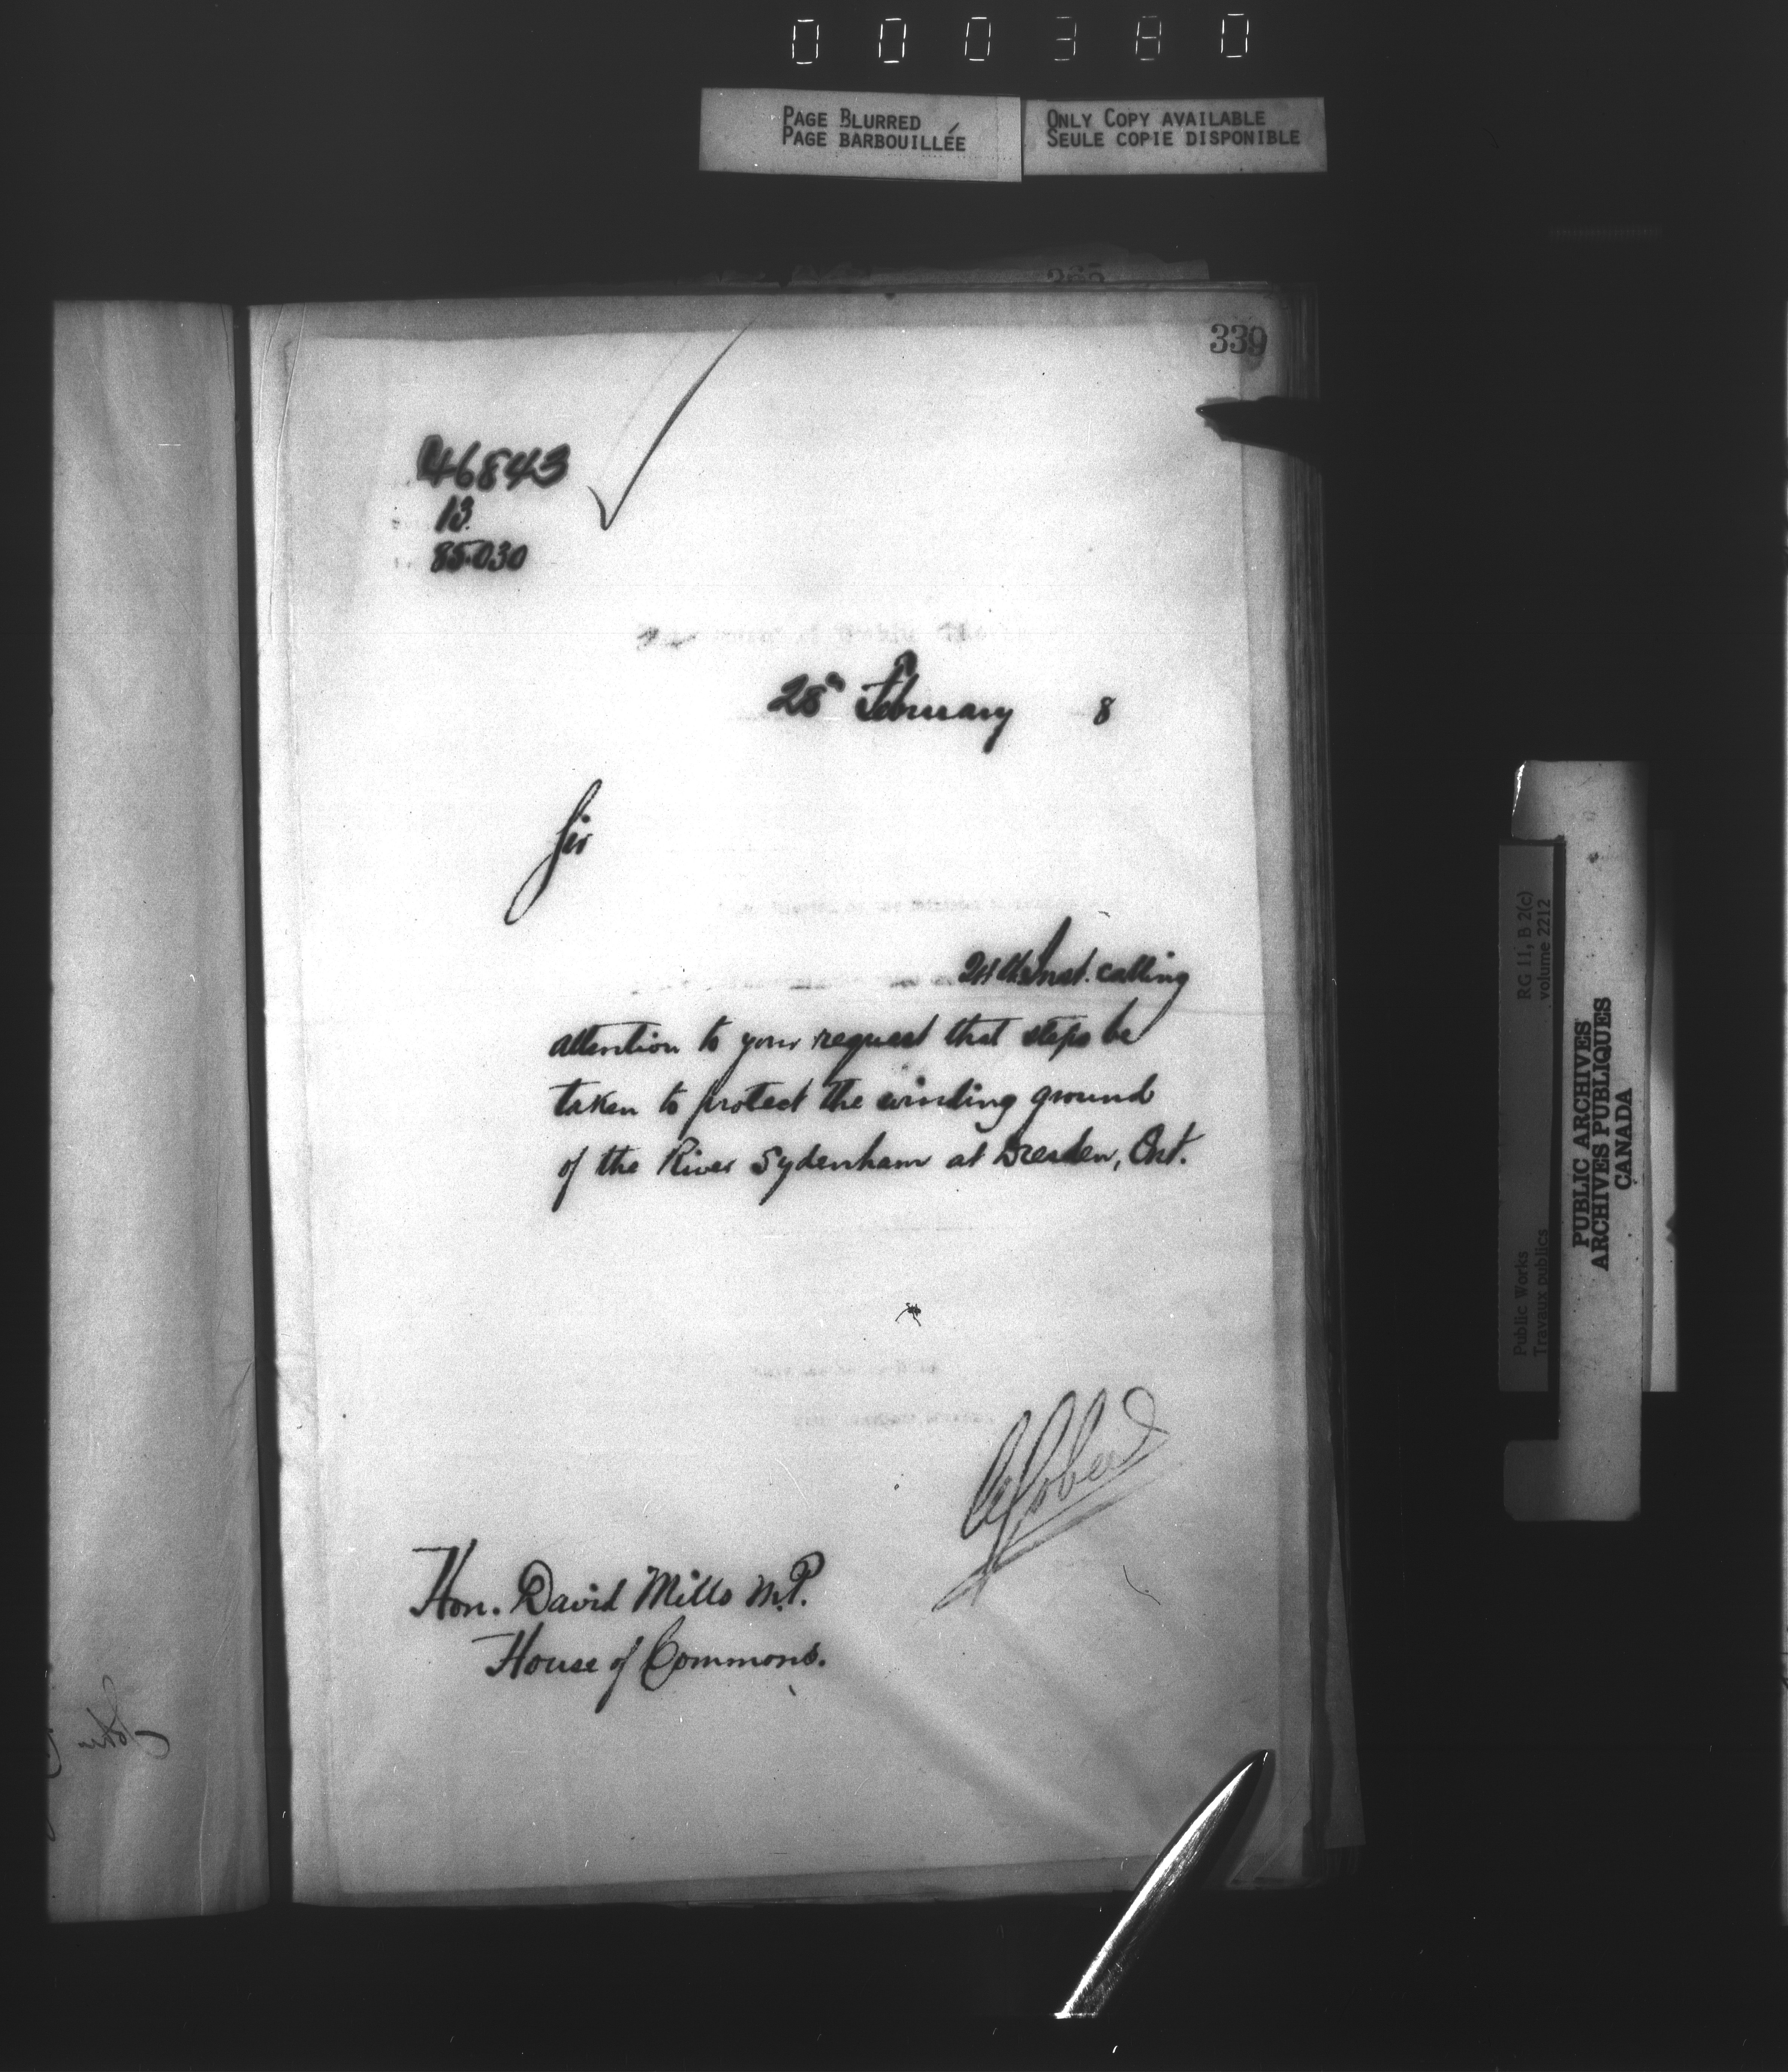 000380
PAGE BLURRED
PAGE BARBOUILLÉE
ONLY COPY AVAILABLE
SEULE COPIE DISPONIBLE
339
46843
13.
85030
28th February 8
Sir
24th Inst. calling
attention to your request that steps be
taken to protect the winding ground
of the River Sydenham at Dresden, Ont.
Hon. David Mills M.P.
House of Commons.
RG 11, B 2(c)
volume 2212
Public Works
Travaux publics
PUBLIC ARCHIVES
ARCHIVES PUBLIQUES
CANADA